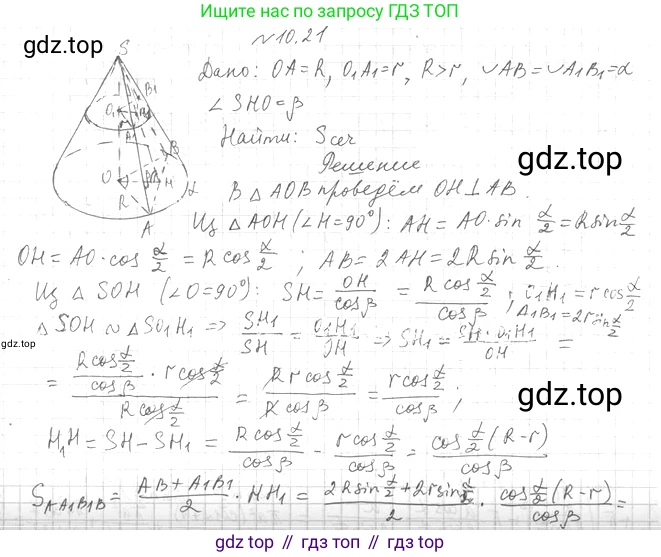 Ищите нас по запросу ГДЗ ТОП
gdz.top
№10.21
Дано: OA=R, O₁A₁=r, R>r, ∪AB=∪A₁B₁=α
∠SHO=β
Найти: Sсеч
Решение
gdz.top
В △AOB проведём OH⊥AB.
Из △AOH (∠H=90°): AH=AO·sin α/2=R sin α/2
OH=AO·cos α/2=R cos α/2; AB=2AH=2R sin α/2.
Из △SOH (∠O=90°): SH=OH/cosβ=(R cos α/2)/cosβ; O₁H₁=r cos α/2
A₁B₁=2r sin α/2
△SOH∾△SO₁H₁ => SH₁/SH=O₁H₁/OH => SH₁=(SH·O₁H₁)/OH=
gdz.top
=((R cos α/2)/cosβ·r cos α/2)/(R cos α/2)=(R r cos α/2)/(R cosβ)=(r cos α/2)/cosβ;
gdz.top
H₁H=SH-SH₁=(R cos α/2)/cosβ-(r cos α/2)/cosβ=(cos α/2 (R-r))/cosβ
S AA₁B₁B=(AB+A₁B₁)/2·HH₁=(2R sin α/2+2r sin α/2)/2·(cos α/2 (R-r))/cosβ=
gdz.top // gdz.top // gdz.top
S
O₁
B₁
H₁
A₁
O
B
H
α
R
A